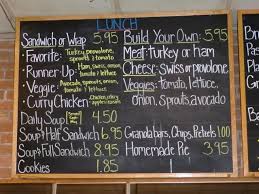 LUNCH
Sandwich or Wrap 5.95
Favorite: Turkey, provolone, sprouts & tomato
Runner Up: Ham, Swiss, onion, tomato & lettuce
Veggie: Avocado, provolone, tomato & lettuce
Curry Chicken: Chicken, celery apples & raisins
Daily Soup 4.50
Soup & Half Sandwich 6.95
Soup & Full Sandwich 8.95
Cookies 1.85
Build Your Own: 5.95
Meat: Turkey or Ham
Cheese: Swiss or provolone
Veggies: Tomato, lettuce,
onion, sprouts, avocado
Granola bars, Chips, 1.00
Homemade Pie 3.95